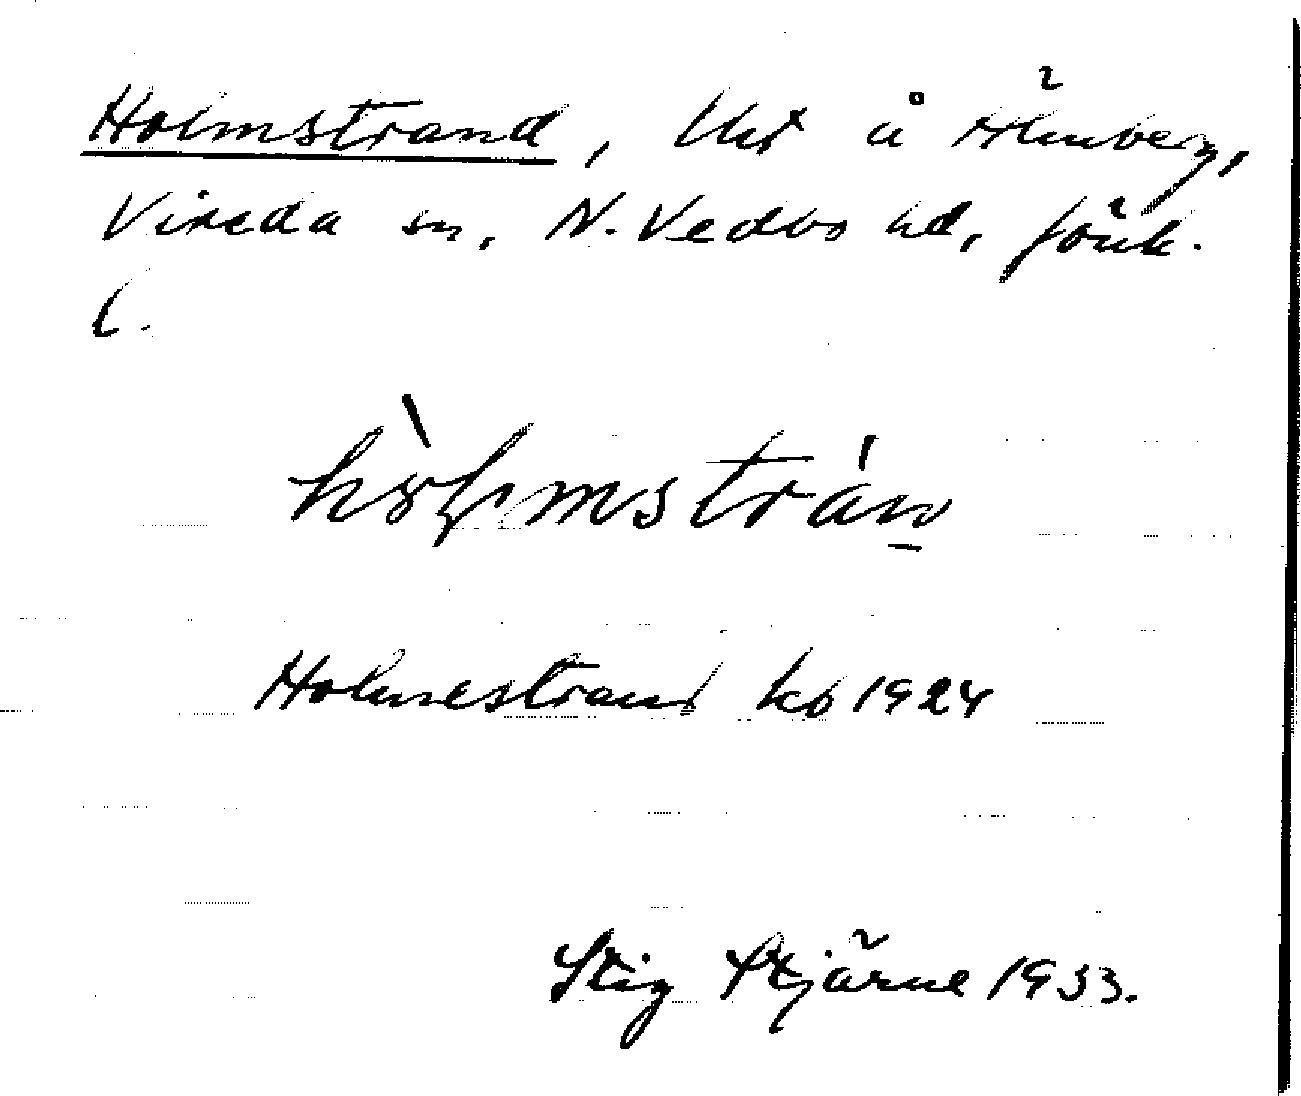 Holmstrand, Utj å Älmberg,
Vireda sn, N. Vedbo hd, Jönk.
l.
hòlmstrán
Holmestrand kb 1924
Stig Stjärne 1933.